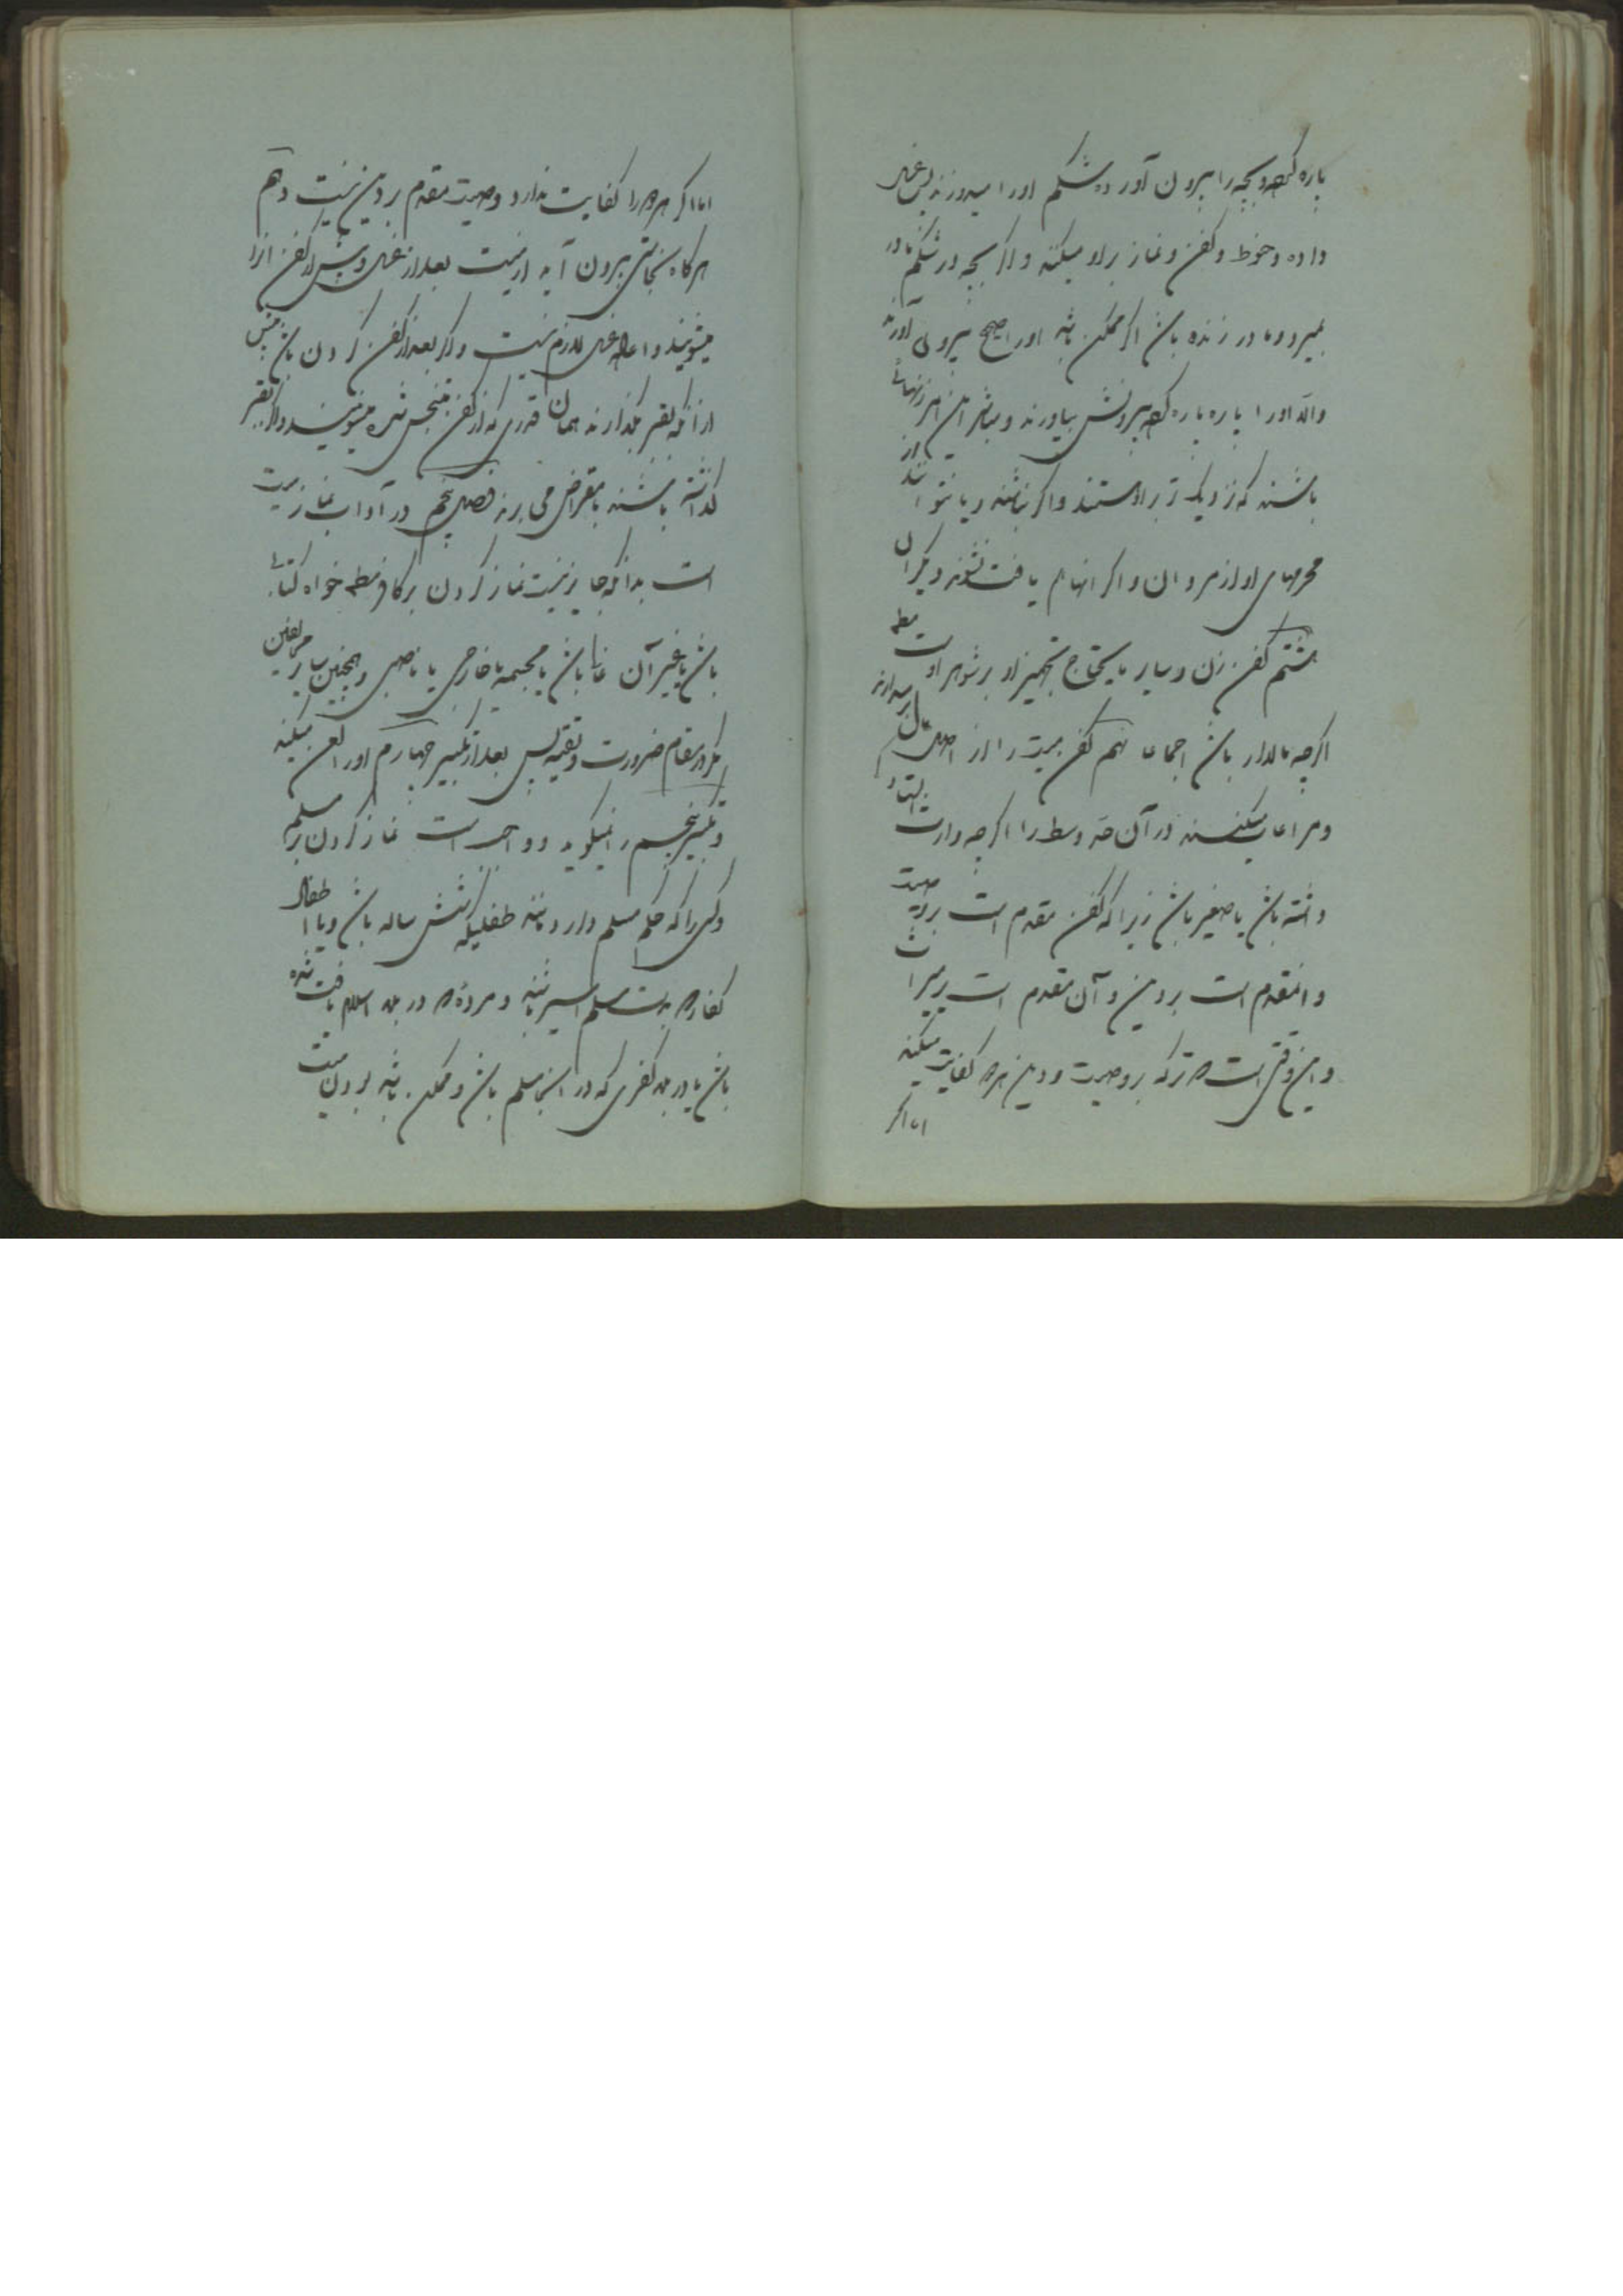 پاره کرده و بچه را بیرون آورده شکم او را میدوزند پس غسل
داده و حنوط و کفن و نماز بر او میکنند و اگر بچه در شکم مادر
بمیرد و مادر زنده باشد اگر ممکن باشد او را صحیح بیرون آورند
والا او را پاره پاره کرده بیرونش بیاورند و مباشر این امر زنهائی
باشند که نزدیک تر براو هستند و اگر نباشند و یا نتوانند از
محرمهای او از مردان و اگر انها هم یافت نشوند دیگران
هشتم کفن زن و سایر مایحتاج تجهیز او بر شوهر او است مطلقا
اگرچه مالدار باشد اجماعا نهم کفن میت را از اصل مال برمیدارند
و مراعات میکنند در آن حد وسط را اگرچه وارث
داشته باشد یا صغیر باشد زیرا که کفن مقدم است بر وصیت
و ان مقدم است بر دین و آن مقدم است بر میراث
و این وقتی است که ترکه بر وصیت و دین هر دو کفایت میکند
اما اگر
اما اگر هر دو را کفایت ندارد وصیت مقدم بر دین نیست دهم
هرگاه نجاستی بیرون آید از میت بعد از غسل و پیش از کفن انرا
میشویند و اعاده غسل لازم نیست و اگر بعد از کفن کردن باشد پیش
از آنکه بقبر بگذارند همان قدری که از کفن متنجس شده میشویند و اگر بقبر
گذاشته باشند با مقراض می برند فصل پنجم در آداب نماز میت
است بدانکه جایز نیست نماز کردن بر کافر مطلقا خواه کتابی
باشد یا غیر آن غالی باشد یا مجسمه یا خارجی یا ناصبی و همچنین سایر مخالفین
مگر در مقام ضرورت و تقیه پس بعد از تکبیر چهارم او را لعن میکند
و تکبیر پنجم را نمیگوید و واجب است نماز کردن بر مسلم
و کسی را که حکم مسلم دارد مانند طفلیکه شش ساله باشد و یا اطفال
کفار که بدست مسلم اسیر باشند و مرده که در بلد اسلام یافت شده
باشد یا در بلد کفری که در آنجا مسلم باشد و ممکن باشد بودن میت